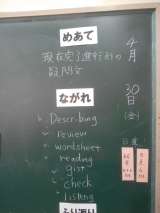 めあて
現在完了進行形の
疑問文
4月
30日
(金)
ながれ
Describing
review
worksheet
reading
gist
check
listening
日直
ふり返り